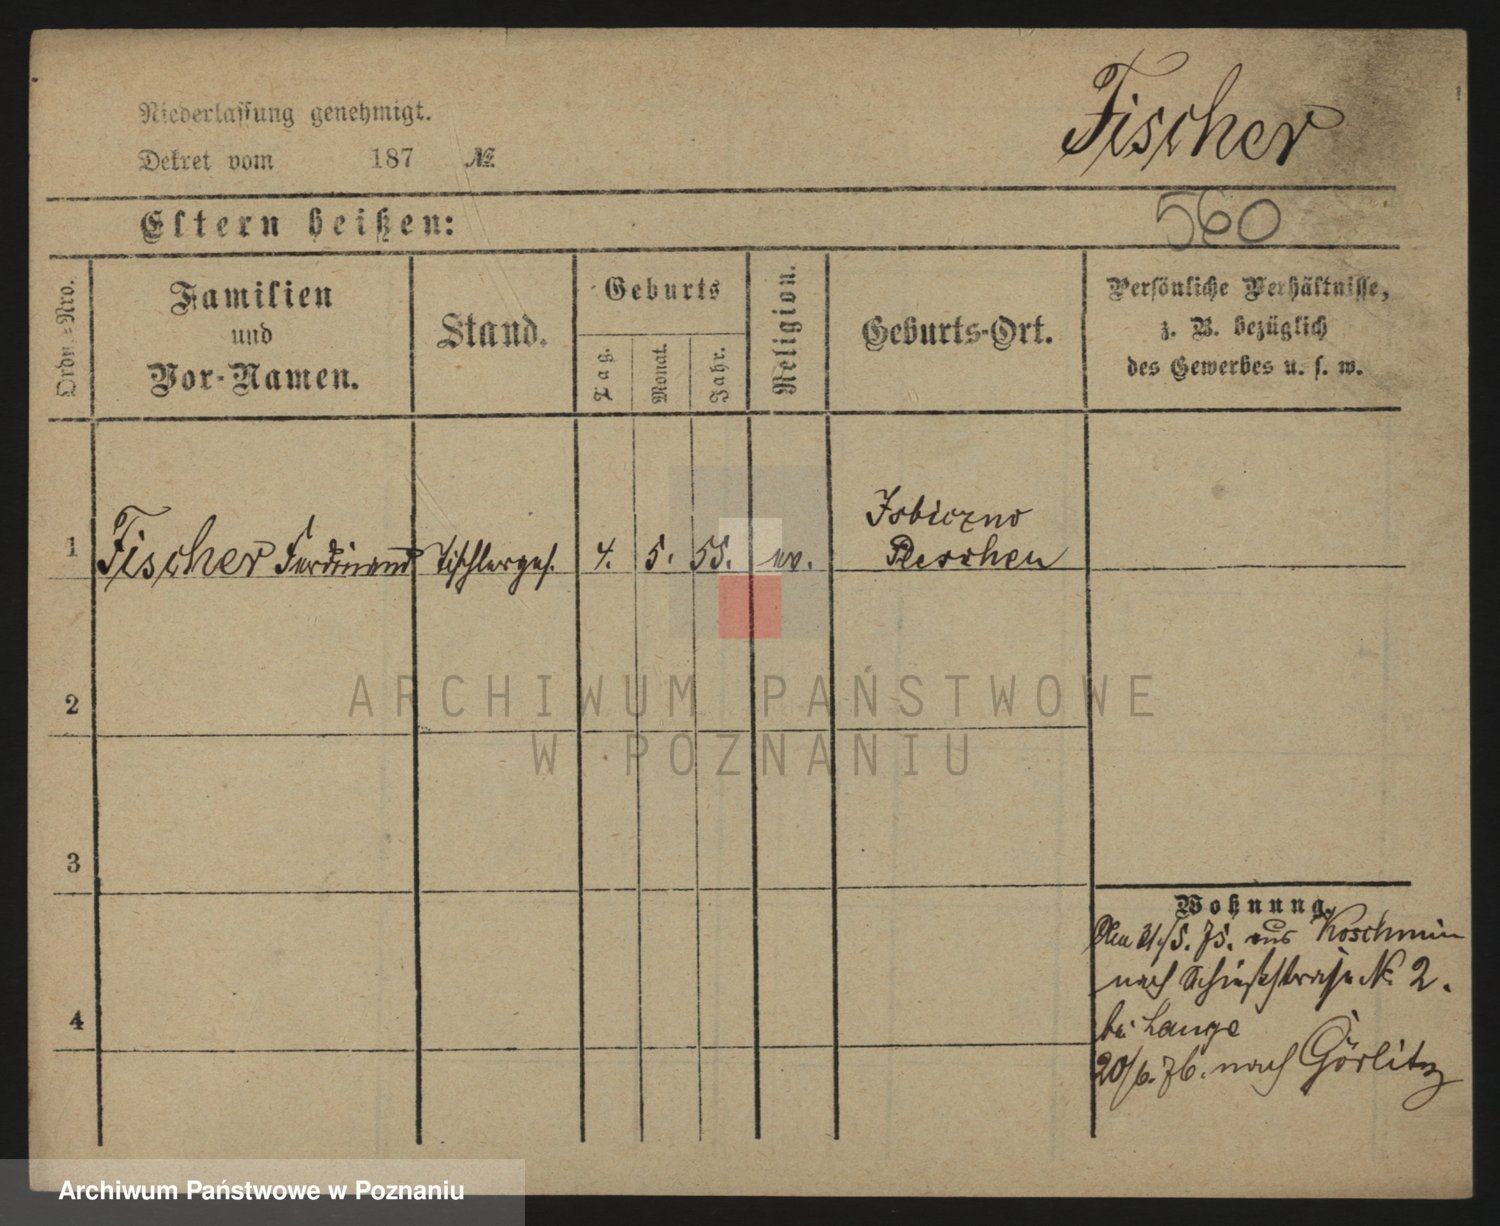 Niederlassung genehmigt.
Fischer
Dekret vom 187 №
Eltern heißen:
560
Ordn.-Nro.
Familien
und
Vor-Namen.
Stand.
Geburts
Tag.
Monat.
Jahr.
Religion.
Geburts-Ort.
Persönliche Verhältnisse,
z. B. bezüglich
des Gewerbes u. s. w.
1 Fischer Ferdinand Tischlerges. 4. 5. 55. ev.
Isbiczno
Pleschen
2
ARCHIWUM PAŃSTWOWE
W POZNANIU
3
Wohnung.
Den 21/5. 75. aus Koschmin
nach Schießstraße № 2.
4
bei Lange
20/6. 76. nach Görlitz
Archiwum Państwowe w Poznaniu